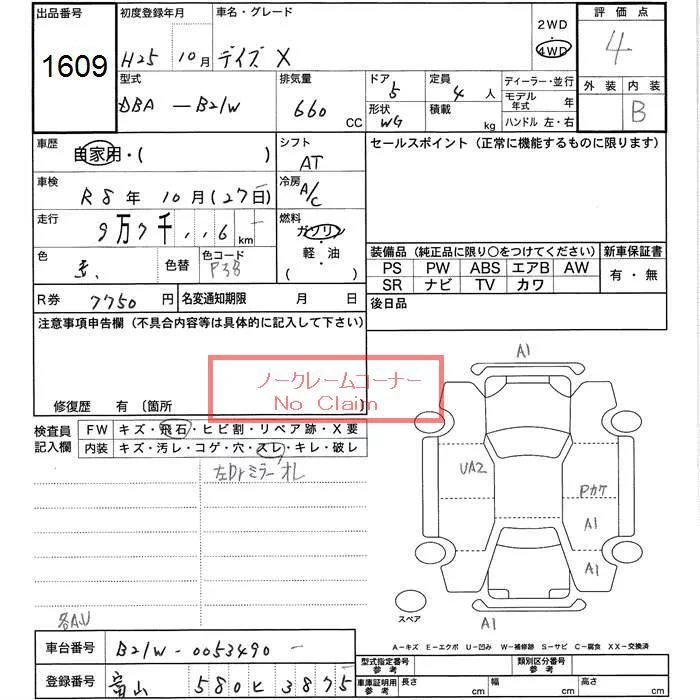 出品番号 初度登録年月 車名・グレード 2WD 評価点
1609 H25年 10月 デイズ X 4WD 4
型式 排気量 ドア 定員 ディーラー・並行 外装 内装
DBA-B21W 660 CC 5 4人 モデル年式 年 B
形状 WG 積載 kg ハンドル 左・右
車歴 自家用・( ) シフト AT セールスポイント (正常に機能するものに限ります)
車検 R8年 10月(27日) 冷房 A/C
走行 9万7千,,16 km 燃料 ガソリン
軽・油
( )
色 色替 色コード 装備品 (純正品に限り〇をつけてください) 新車保証書
PS PW ABS エアB AW 有・無
SR ナビ TV カワ
R券 7750円 名変通知期限 月 日 後日品
注意事項申告欄 (不具合内容等は具体的に記入して下さい)
ノークレームコーナー
No Claim
修復歴 有 〔箇所 〕
検査員記入欄 FW キズ・飛石・ヒビ割・リペア跡・X要
内装 キズ・汚レ・コゲ・穴・スレ・キレ・破レ
左Drミラーオレ
各AU
A1
UA2
Pカケ
A1
A1
スペア A1
A-キズ E-エクボ U-凹み W-補修跡 S-サビ C-腐食 XX-交換済
車台番号 B21W-0053490
登録番号 富山 580 ヒ 3875
型式指定番号 参考 類別区分番号 参考
車庫証明用 参考 長さ cm 幅 cm 高さ cm